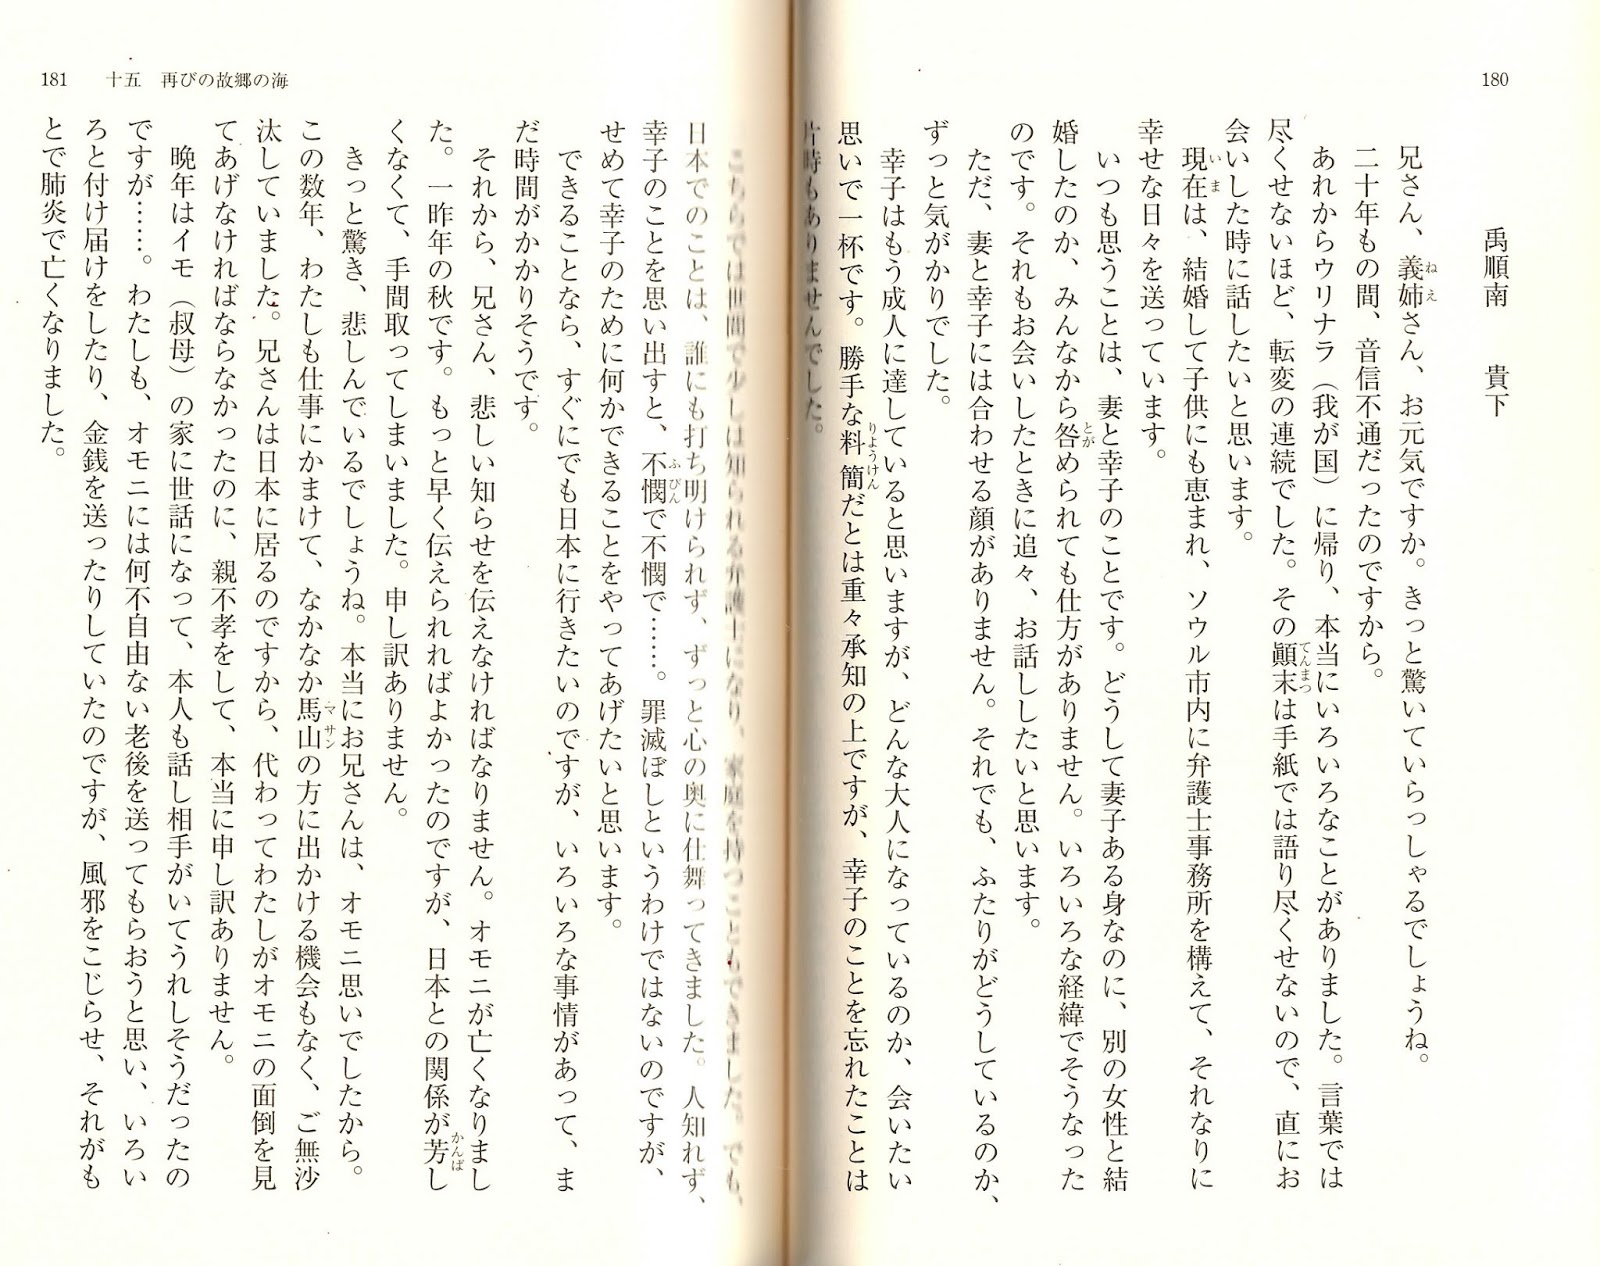 180
禹順南　貴下
兄さん、義姉さん、お元気ですか。きっと驚いていらっしゃるでしょうね。
二十年もの間、音信不通だったのですから。
あれからウリナラ（我が国）に帰り、本当にいろいろなことがありました。言葉では
尽くせないほど、転変の連続でした。その顚末は手紙では語り尽くせないので、直にお
会いした時に話したいと思います。
現在は、結婚して子供にも恵まれ、ソウル市内に弁護士事務所を構えて、それなりに
幸せな日々を送っています。
いつも思うことは、妻と幸子のことです。どうして妻子ある身なのに、別の女性と結
婚したのか、みんなから咎められても仕方がありません。いろいろな経緯でそうなった
のです。それもお会いしたときに追々、お話ししたいと思います。
ただ、妻と幸子には合わせる顔がありません。それでも、ふたりがどうしているのか、
ずっと気がかりでした。
幸子はもう成人に達していると思いますが、どんな大人になっているのか、会いたい
思いで一杯です。勝手な料簡だとは重々承知の上ですが、幸子のことを忘れたことは
片時もありませんでした。
181　十五　再びの故郷の海
こちらでは世間で少しは知られる弁護士になり、家庭を持つこともできました。でも、
日本でのことは、誰にも打ち明けられず、ずっと心の奥に仕舞ってきました。人知れず、
幸子のことを思い出すと、不憫で不憫で……。罪滅ぼしというわけではないのですが、
せめて幸子のために何かできることをやってあげたいと思います。
できることなら、すぐにでも日本に行きたいのですが、いろいろな事情があって、ま
だ時間がかかりそうです。
それから、兄さん、悲しい知らせを伝えなければなりません。オモニが亡くなりまし
た。一昨年の秋です。もっと早く伝えられればよかったのですが、日本との関係が芳し
くなくて、手間取ってしまいました。申し訳ありません。
きっと驚き、悲しんでいるでしょうね。本当にお兄さんは、オモニ思いでしたから。
この数年、わたしも仕事にかまけて、なかなか馬山の方に出かける機会もなく、ご無沙
汰していました。兄さんは日本に居るのですから、代わってわたしがオモニの面倒を見
てあげなければならなかったのに、親不孝をして、本当に申し訳ありません。
晩年はイモ（叔母）の家に世話になって、本人も話し相手がいてうれしそうだったの
ですが……。わたしも、オモニには何不自由ない老後を送ってもらおうと思い、いろい
ろと付け届けをしたり、金銭を送ったりしていたのですが、風邪をこじらせ、それがも
とで肺炎で亡くなりました。